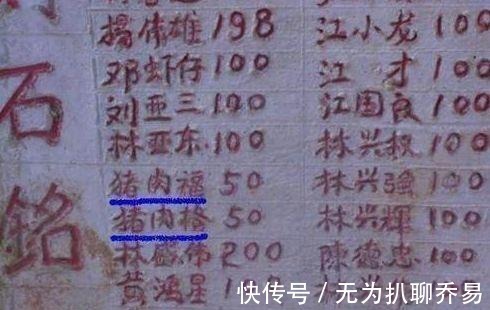 石
銘
楊伟雄 198 江小龙 100
邓虾仔 100 江 才 100
刘亚三 100 江国良 100
林亚东 100 林兴权 100
猪肉福 50 林兴強 100
猪肉格 50 林兴輝 100
林 伟 200 陳德忠 100
黄鸿星 林
快传号 / 无为扒聊乔易